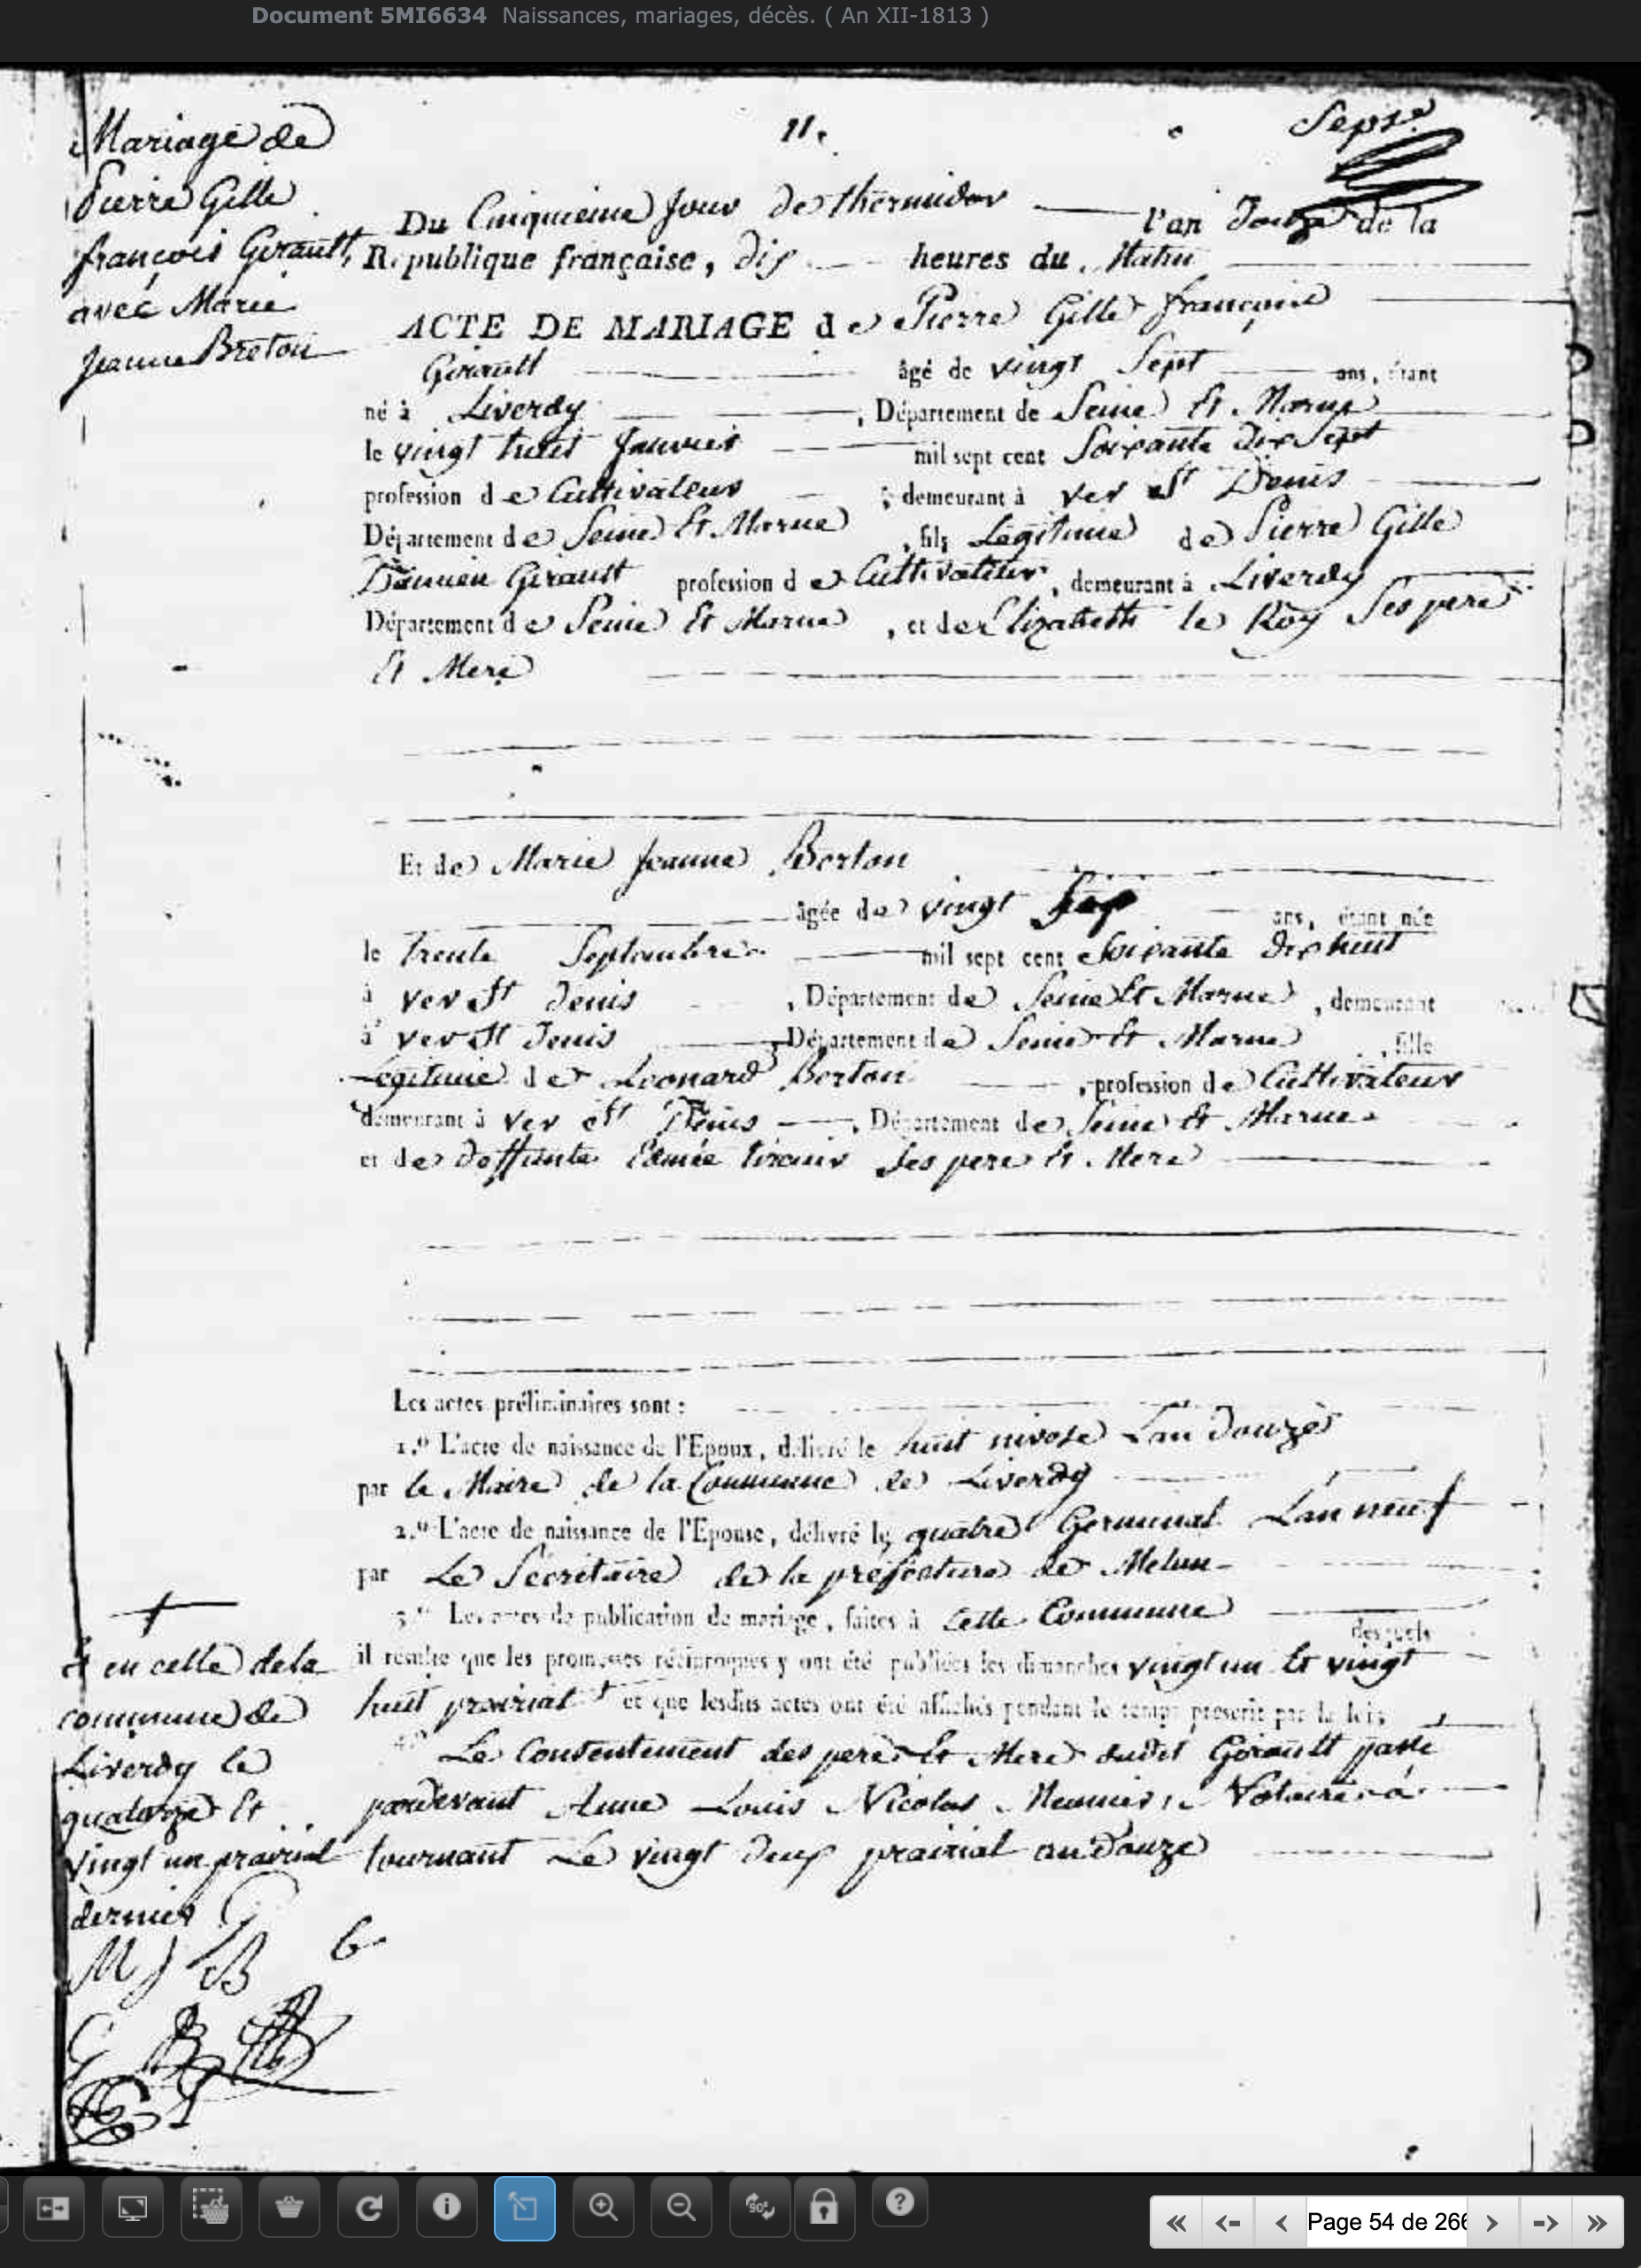 Document 5MI6634 Naissances, mariages, décès. ( An XII-1813 )
11.
Sept.
Mariage de
Pierre Gille
françois Girault,
avec Marie
Jeanne Breton
Du Cinquieme Jour de thermidor l'an Douze de la
République française, dix heures du Matin
ACTE DE MARIAGE de Pierre Gille françois
Girault âgé de vingt Sept ans, étant
né à Liverdy, Département de Seine Et Marne
le vingt huit Janvier mil sept cent Soixante dix Sept
profession de Cultivateur ; demeurant à ver St Denis
Département de Seine Et Marne, fils Légitime de Pierre Gille
Damien Girault profession de Cultivateur, demeurant à Liverdy
Département de Seine Et Marne, et de Elizabeth le Roy Ses pere
Et Mere
Et de Marie Jeanne Berton
âgée de vingt ans, étant née
le trente Septembre mil sept cent Soixante dix huit
à ver St Denis, Département de Seine Et Marne, demeurant
à ver St Denis, Département de Seine Et Marne, fille
Légitime de Leonard Berton, profession de Cultivateur
demeurant à ver St Denis, Département de Seine Et Marne
et de deffunte Edmée Ses pere Et Mere
Les actes préliminaires sont :
1.º L'acte de naissance de l'Epoux, délivré le huit nivose L'an douze
par le Maire de la Commune de Liverdy
2.º L'acte de naissance de l'Epouse, délivré le quatre Germinal L'an neuf
par Le Secrétaire de la préfecture de Melun
3.º Les actes de publication de mariage, faites à Cette Commune desquels
il résulte que les promesses réciproques y ont été publiées les dimanches vingt un Et vingt
huit prairial + et que lesdits actes ont été affichés pendant le temps prescrit par la loi;
4º Le Consentement des pere Et Mere dudit Girault passé
pardevant Anne Louis Nicolas Meunier, Notaire à
tournant Le vingt deux prairial an douze
+
Et en celle de la
commune de
Liverdy le
quatorze Et
vingt un prairial
dernier G
M J B G
G B
Page 54 de 266